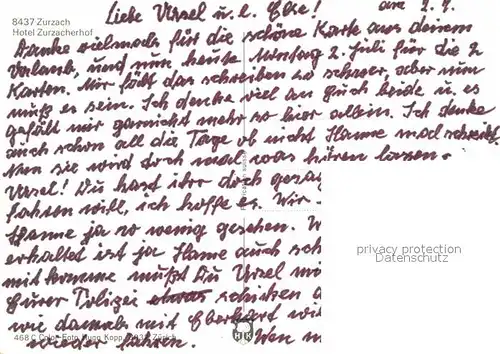 8437 Zurzach
Hotel Zurzacherhof
Liebe Ursel u. l. Elke! am 2. 7.
Danke vielmals für die schöne Karte aus deinem
Urlaub, und nun heute Montag 2. Juli für die 2
Karten. Mir fällt das schreiben so schwer, aber nun
muß es sein. Ich denke viel an Euch beide u. es
gefällt mir garnicht mehr so hier allein. Ich denke
auch schon all die Tage ob nicht Hanne mal schreibt
Nun sie wird doch mal was hören lassen.
Ursel! Du hast ihr doch gesag
fahren will, ich hoffe es. Wir
Hanne ja so wenig gesehen. W
erhaltet ist ja Hanne auch sch
mit komme mußt Du Ursel m
Eurer Polizei schicken
wie damals mit Eberhart wi
wieder fahren. Wen
privacy protection
Datenschutz
468 C Color-Foto Hugo Kopp, Zürich
HK